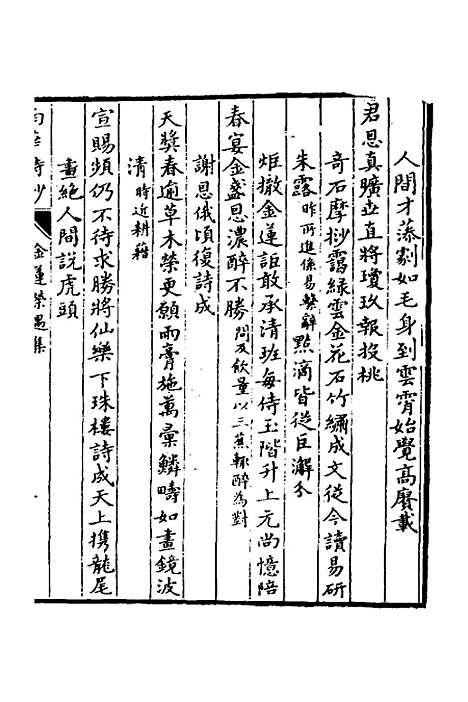 人間才藻劇如毛身到雲霄始覺高賡載
君恩真曠典直將瓊玖報投桃
奇石摩挲靄綠雲金花石竹繡成文從今讀易研
朱露昨所進係易繫辭點滴皆從巨瀣分
炬撤金蓮詎敢承清班每侍玉階升上元尚憶陪
春宴金盞恩濃醉不勝問及飲量以三蕉輒醉為對
謝恩俄頃復詩成
天獎春逾草木榮更願雨膏施萬彙鱗疇如畫鏡波
清時近耕藉
宣賜頻仍不待求勝將仙樂下珠樓詩成天上携龍尾
畫絕人間說虎頭
南華詩鈔
金蓮榮遇集